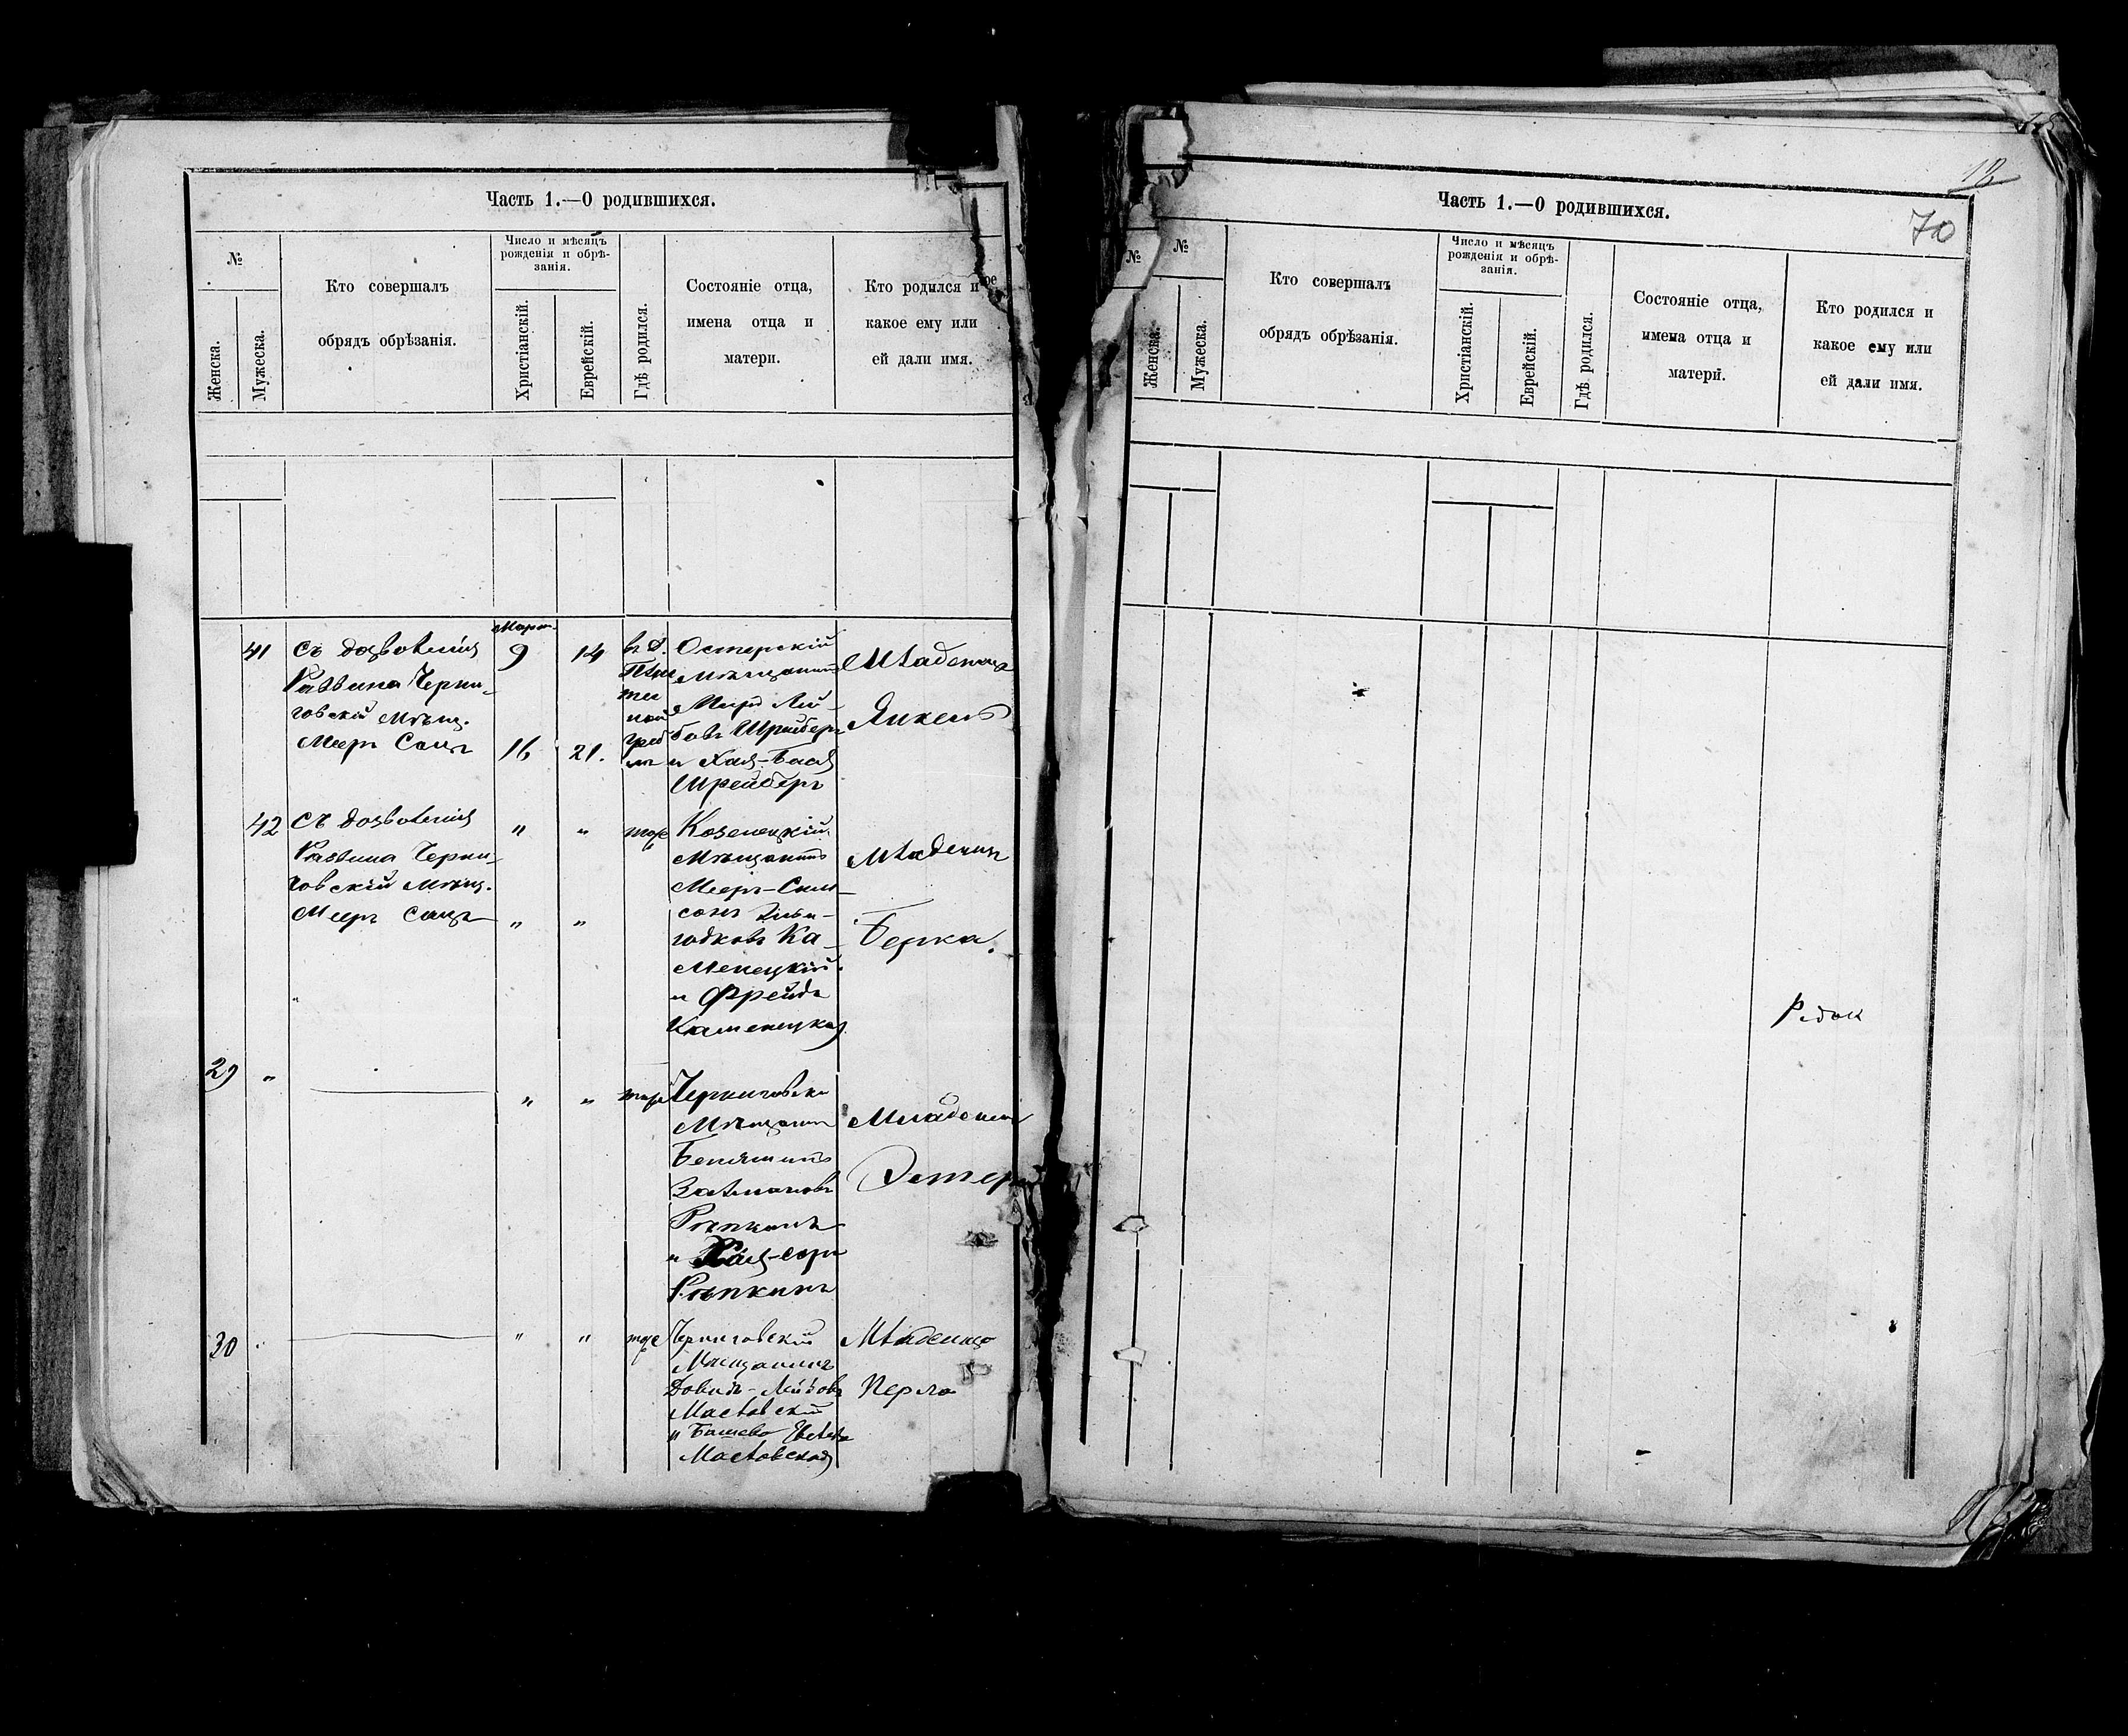 Часть 1.—О родившихся.
№
Женска.
Мужеска.
Кто совершалъ
обрядъ обрѣзанія.
Число и мѣсяцъ
рожденія и обрѣ-
занія.
Христіанскій.
Еврейскій.
Гдѣ родился.
Состояніе отца,
имена отца и
матери.
Кто родился и
какое ему или
ей дали имя.
41
Съ дозволенія
Раввина Черни-
говскій мѣщ.
Мееръ Сацъ
9
16
14
21.
Остерскій
Мѣщанинъ
Шрейберъ
и Хая-Бася
Шрейберъ
Младенецъ
Янкель
42
Съ дозволенія
Раввина Черни-
говскій мѣщ.
Мееръ Сацъ
"
"
"
"
тоже
Козелецкій
Мѣщанинъ
Мееръ-Сим-
сонъ
Ка-
менецкій
и Фрейда
Каменецкая
Младенецъ
Берка.
29
"
"
"
тоже
Мѣщанинъ
Беніаминъ
Залмановъ
и Хая-Сора
Младенецъ
Эстеръ
30
"
"
"
тоже
Черниговскій
Мѣщанинъ
Довидъ-Лейбовъ
Масловскій
и Башева
Масловская
Младенецъ
Перла
12
70
Часть 1.—О родившихся.
№
№
Женска.
Мужеска.
Кто совершалъ
обрядъ обрѣзанія.
Число и мѣсяцъ
рожденія и обрѣ-
занія.
Христіанскій.
Еврейскій.
Гдѣ родился.
Состояніе отца,
имена отца и
матери.
Кто родился и
какое ему или
ей дали имя.